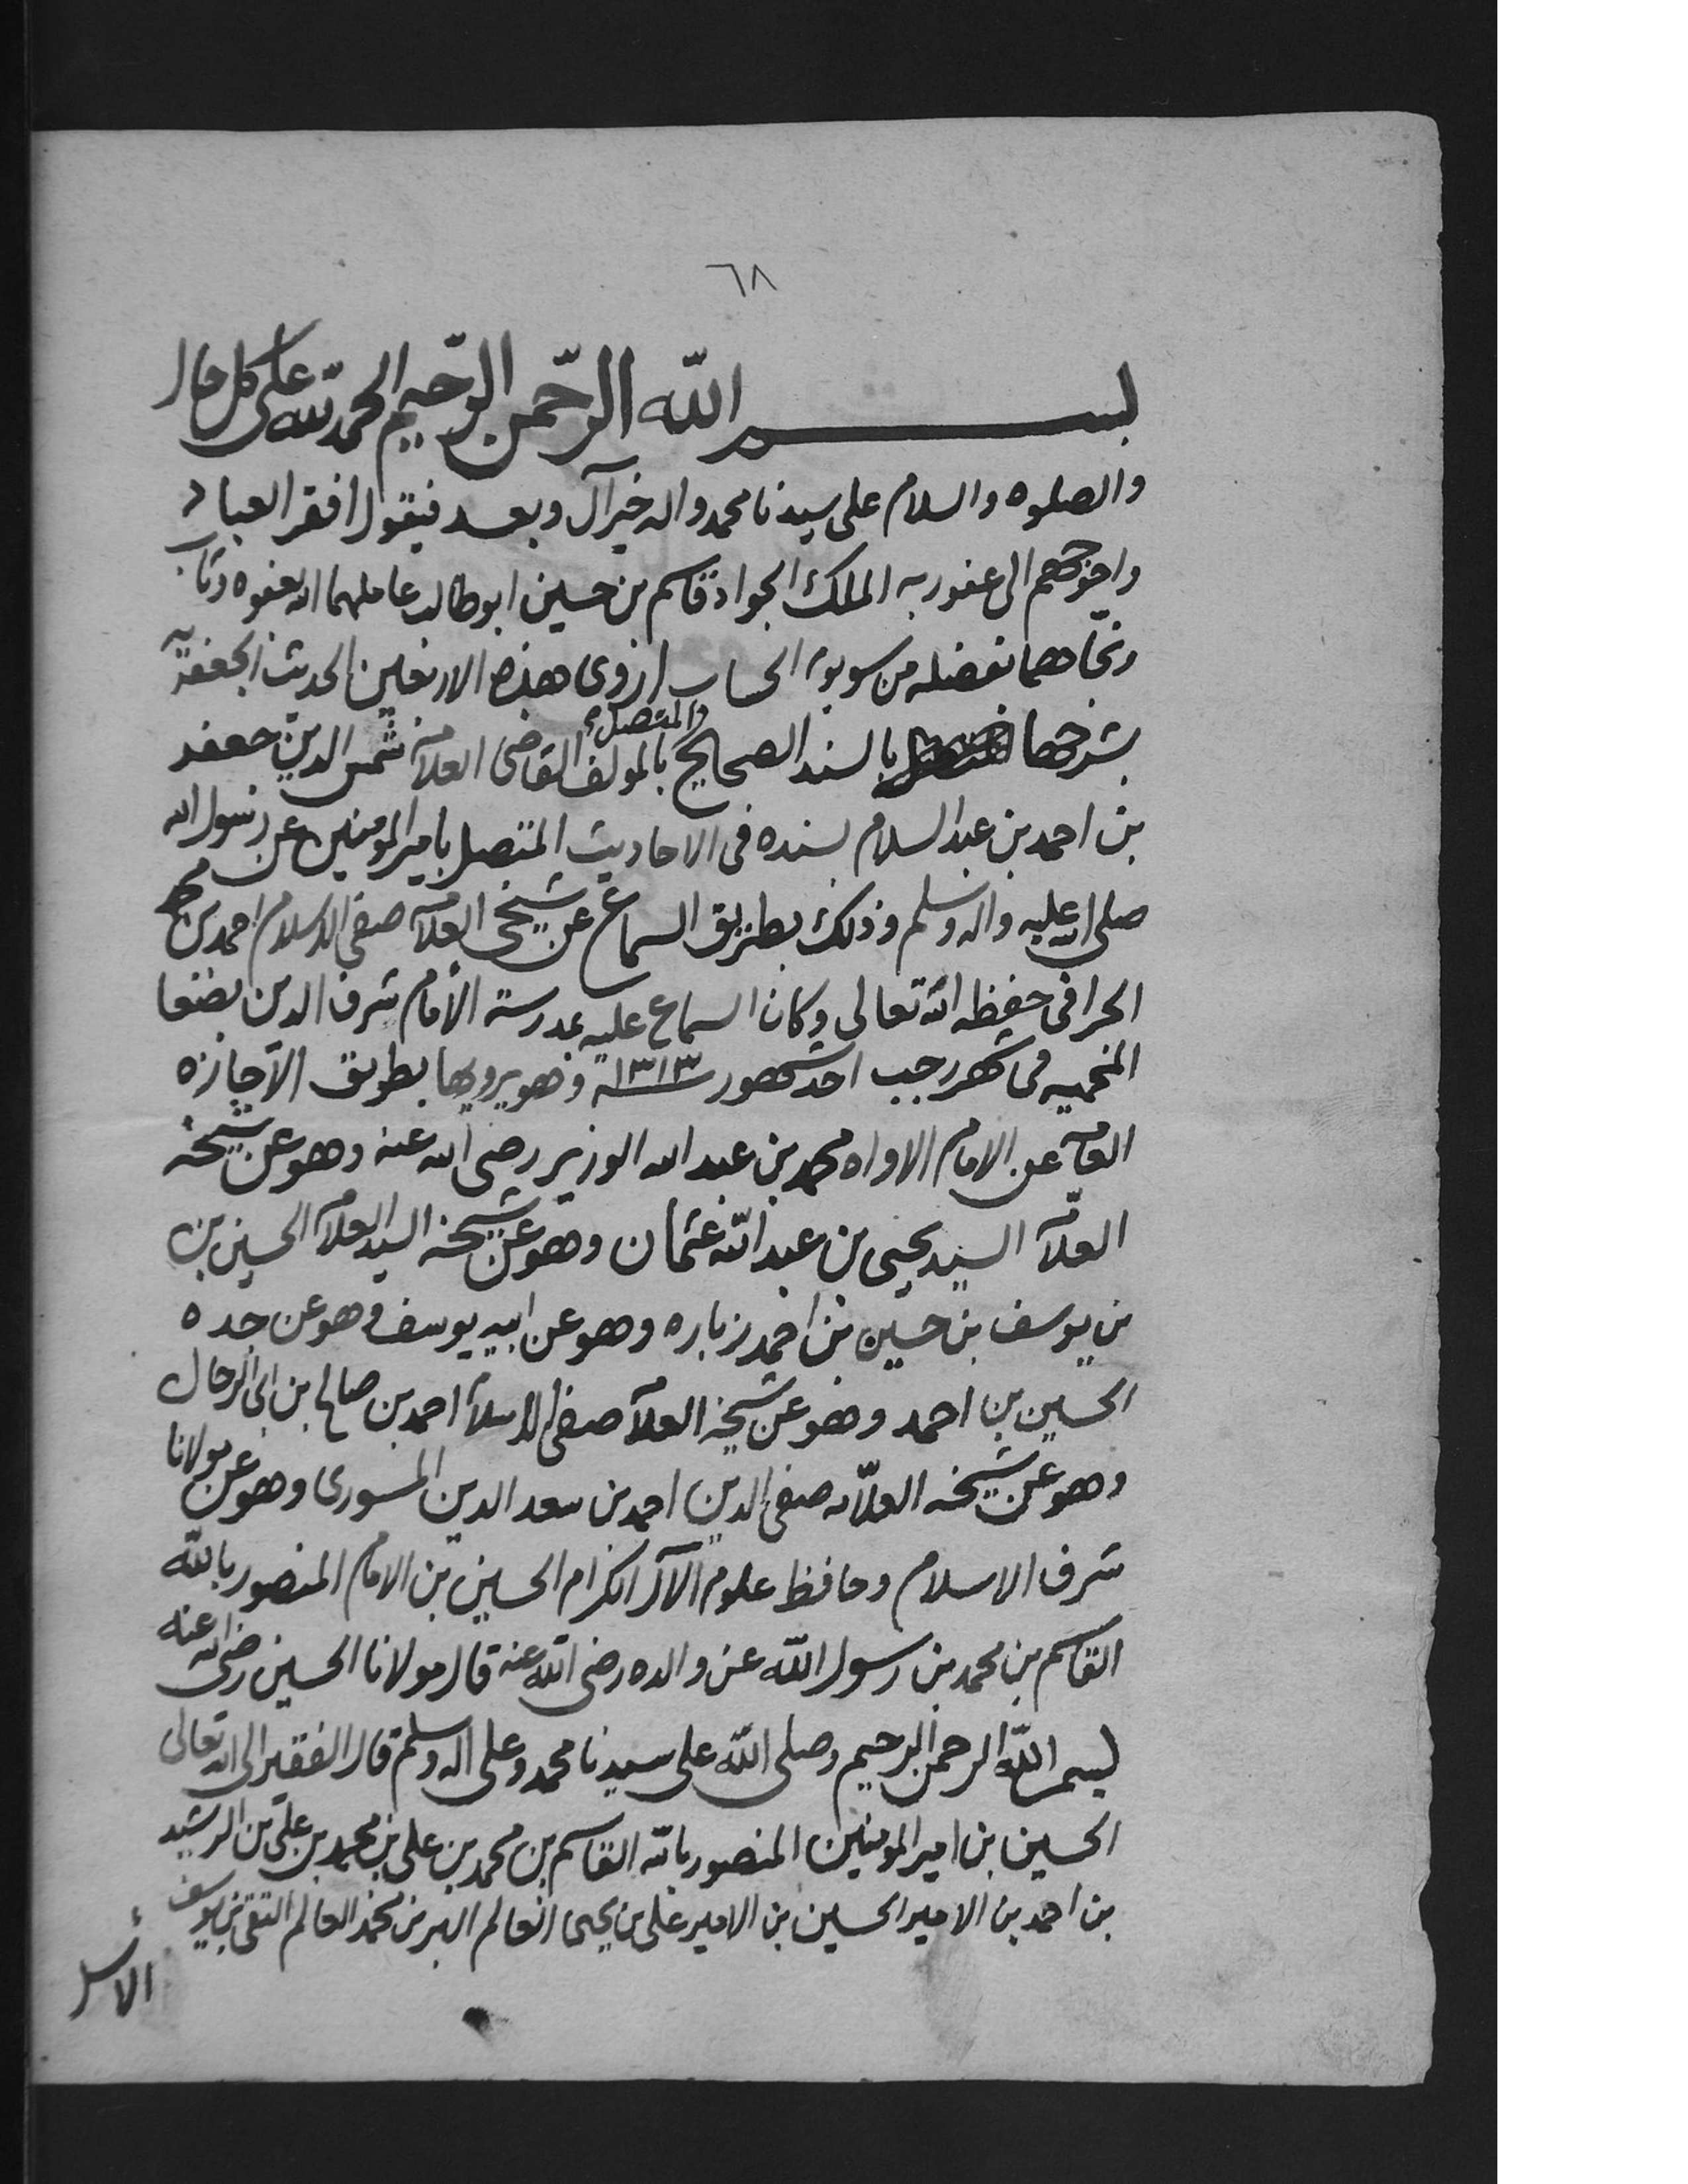 ٦٨
بسم الله الرحمن الرحيم الحمد لله على كل حال
والصلوه والسلام على سيدنا محمد واله خير آل وبعد فيقول افقر العباد
واحوجهم الى عفو ربه الملك الجواد قاسم بن حسين ابو طالب عاملهما الله بعفوه وتاب
ونجاهما بفضله من سوء الحساب اروى هذه الاربعين الحديث الجعفريه
بشرحها بالسند الصحيح والمتصل بالمولف القاضى العلامه شمس الدين جعفر
بن احمد بن عبد السلام بسنده فى الاحاديث المتصل بامير المومنين عن رسول الله
صلى الله عليه واله وسلم وذلك بطريق السماع عن شيخى العلامه صفي الاسلام احمد بن محمد
الجرافى حفظه الله تعالى وكان السماع عليه بمدرسة الأمام شرف الدين بصنعا
المحميه فى شهر رجب احد شهور سنة ١٣١٣ وهو يرويها بطريق الاجازه
العامه عن الامام الاواه محمد بن عبد الله الوزير رضى الله عنه وهو عن شيخه
العلامه السيد يحيى بن عبد الله عثمان وهو عن شيخه السيد العلامه الحسين بن
بن يوسف بن حسين بن احمد زباره وهو عن ابيه يوسف وهو عن جده
الحسين بن احمد وهو عن شيخه العلامه صفى الاسلام احمد بن صالح بن ابى الرجال
وهو عن شيخه العلامه صفى الدين احمد بن سعد الدين المسورى وهو عن مولانا
شرف الاسلام وحافظ علوم الآل الكرام الحسين بن الامام المنصور بالله
القاسم بن محمد بن رسول الله عن والده رضى الله عنه قال مولانا الحسين رضى الله عنه
بسم الله الرحمن الرحيم وصلى الله على سيدنا محمد وعلى اله وسلم قال الفقير الى الله تعالى
الحسين بن امير المومنين المنصور بالله القاسم بن محمد بن على بن محمد بن على بن الرشيد
بن احمد بن الامير الحسين بن الامير على بن يحيى العالم البر بن محمد العالم التقى بن يوسف
الأشل